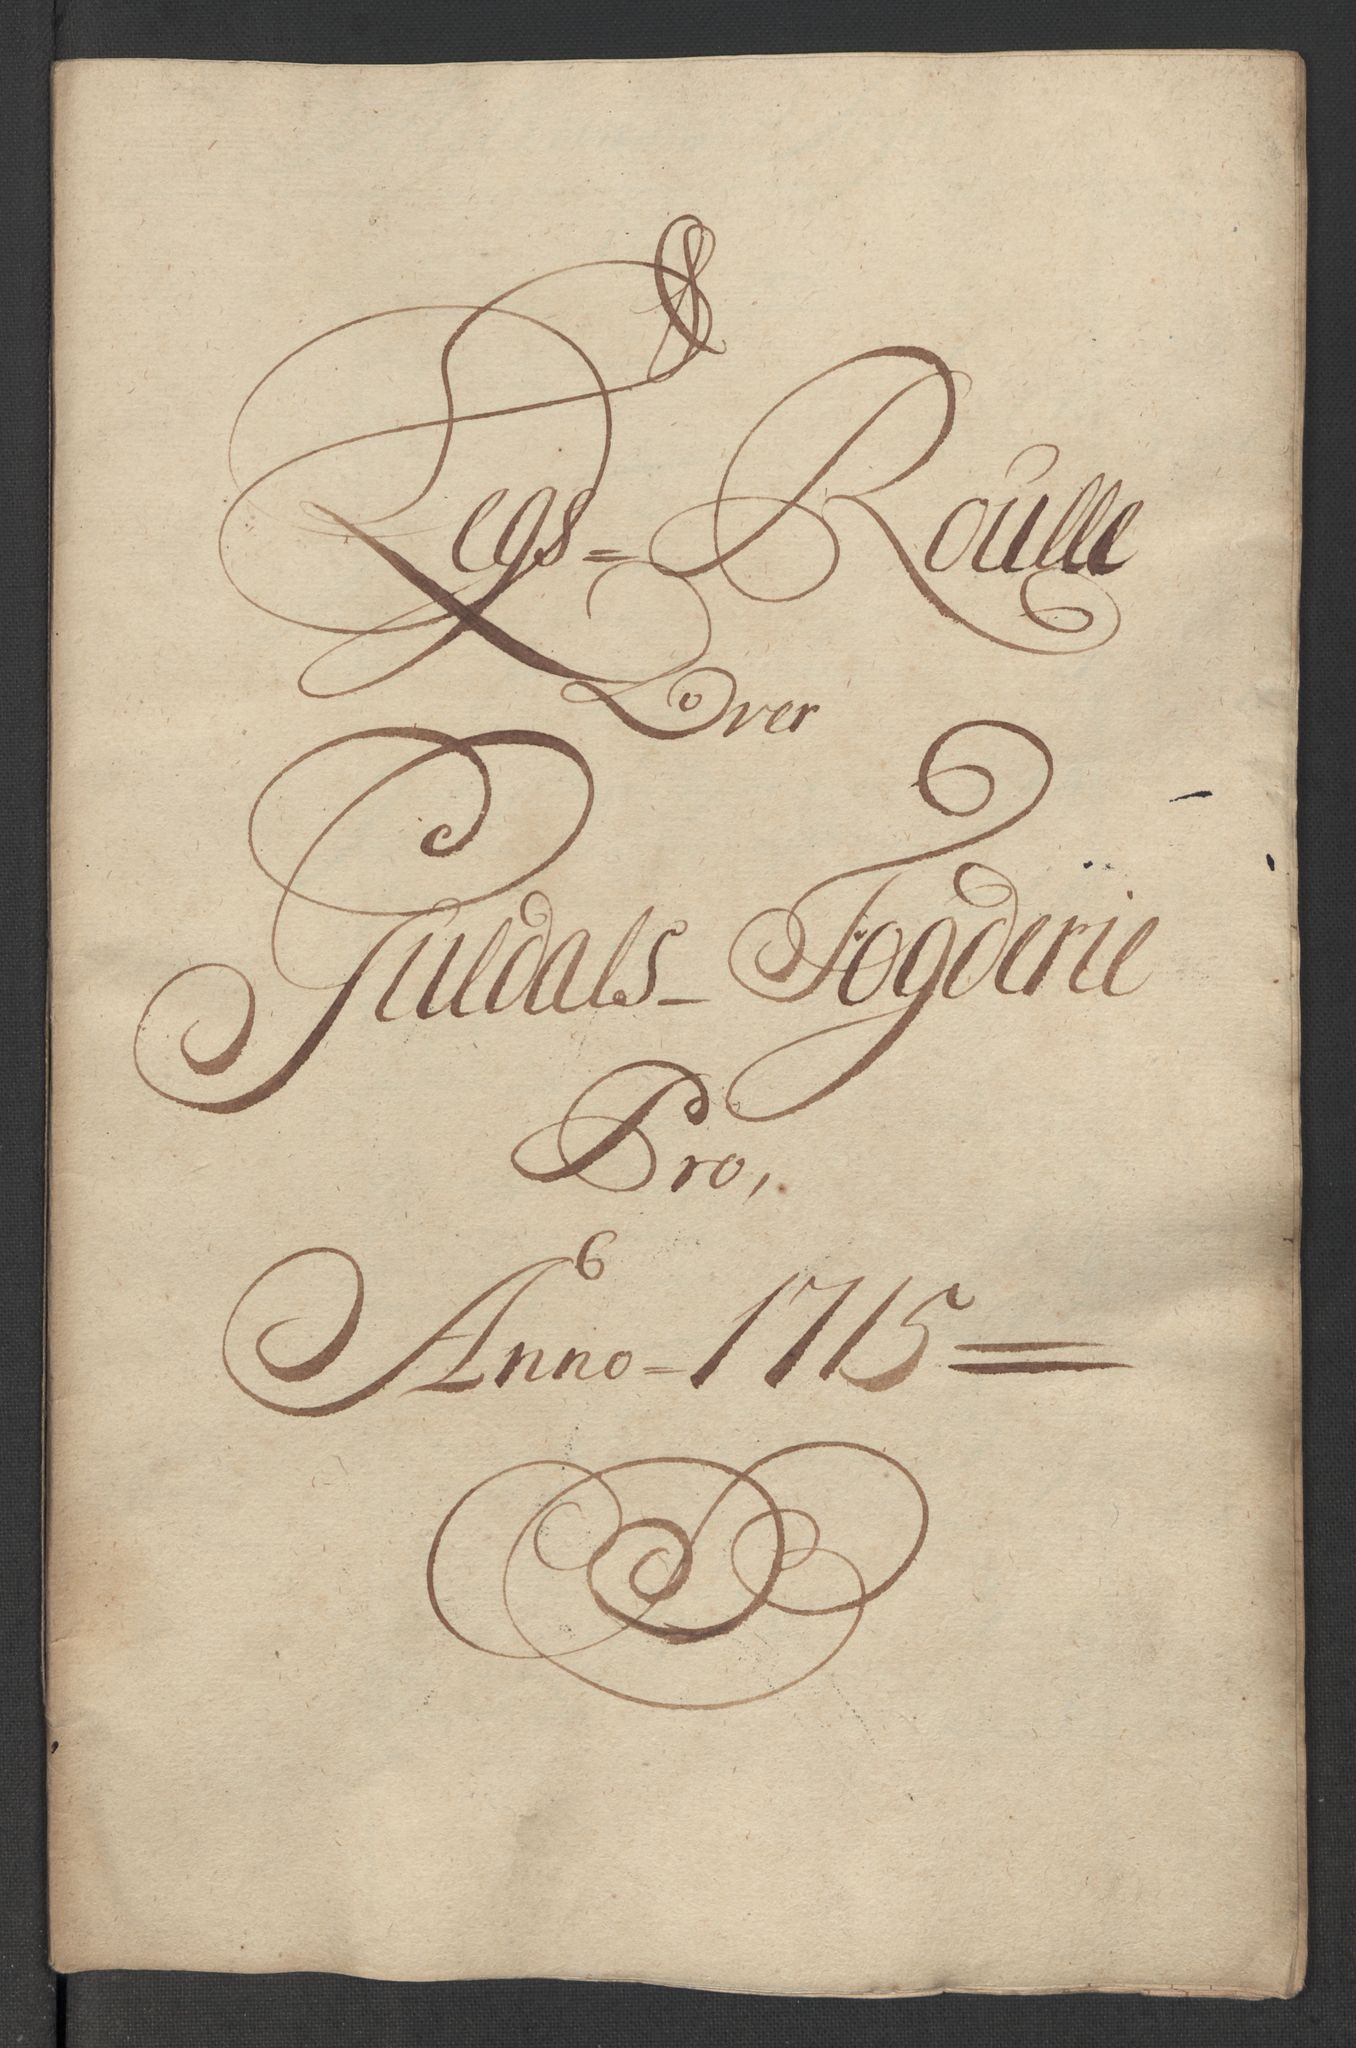 Legs=Roulle
Over
Guldals-Fogderie
Pro,
Anno=1715=